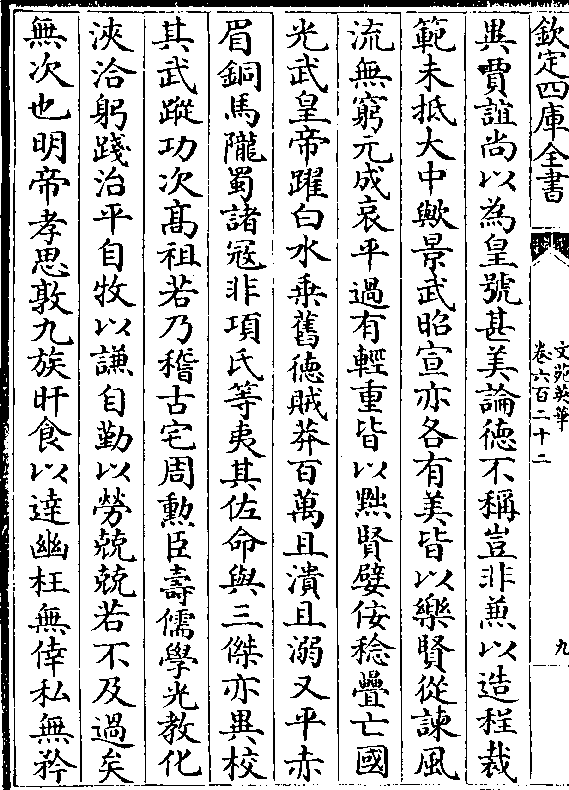 欽定四庫全書
文苑英華
卷六百二十二
九
異賈誼尚以為皇號甚美論徳不稱豈非兼以造程裁
範未抵大中歟景武昭宣亦各有美皆以樂賢從諫風
流無窮元成哀平過有輕重皆以黜賢嬖佞稔疊亡國
光武皇帝躍白水乗舊徳賊莽百萬且潰且溺又平赤
眉銅馬隴蜀諸冦非項氏等夷其佐命與三傑亦異校
其武蹤功次髙祖若乃稽古宅周勲臣壽儒學光教化
浹洽躬踐治平自牧以謙自勤以勞兢兢若不及過矣
無次也明帝孝思敦九族旰食以逹幽枉無倖私無矜